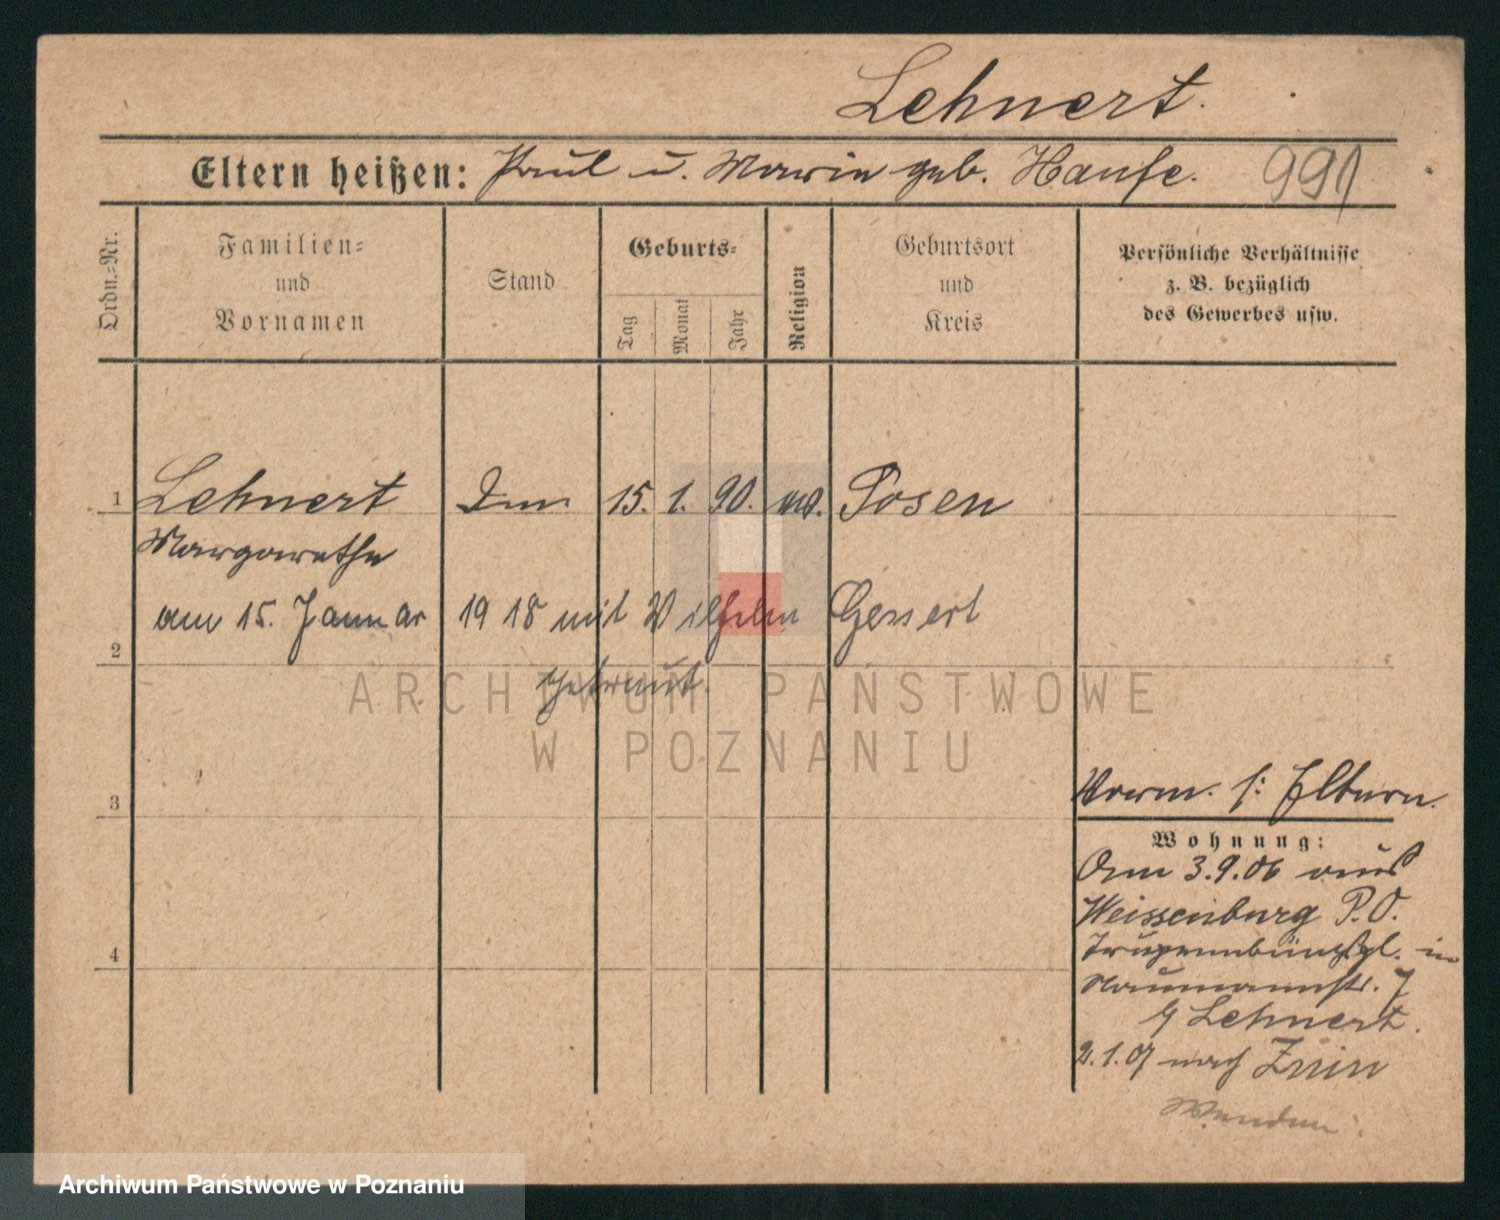 Lehnert.
Eltern heißen: Paul u. Marie geb. Haufe. 991
Ordn.=Nr.
Familien=
und
Vornamen
Stand
Geburts=
Tag
Monat
Jahr
Religion
Geburtsort
und
Kreis
Persönliche Verhältnisse
z. B. bezüglich
des Gewerbes usw.
1 Lehnert 15. 1. 90. Posen
Margarethe
am 15. Januar 1918 mit Wilhelm Gessert
2
getraut.
ARCHIWUM PAŃSTWOWE
W POZNANIU
3
Vorm. s: Eltern.
Wohnung:
Am 3.9.06 aus
Weissenburg P.O.
in
Naumannstr. 7
Lehnert.
4
2.1.07 nach Znin
Wenden
Archiwum Państwowe w Poznaniu